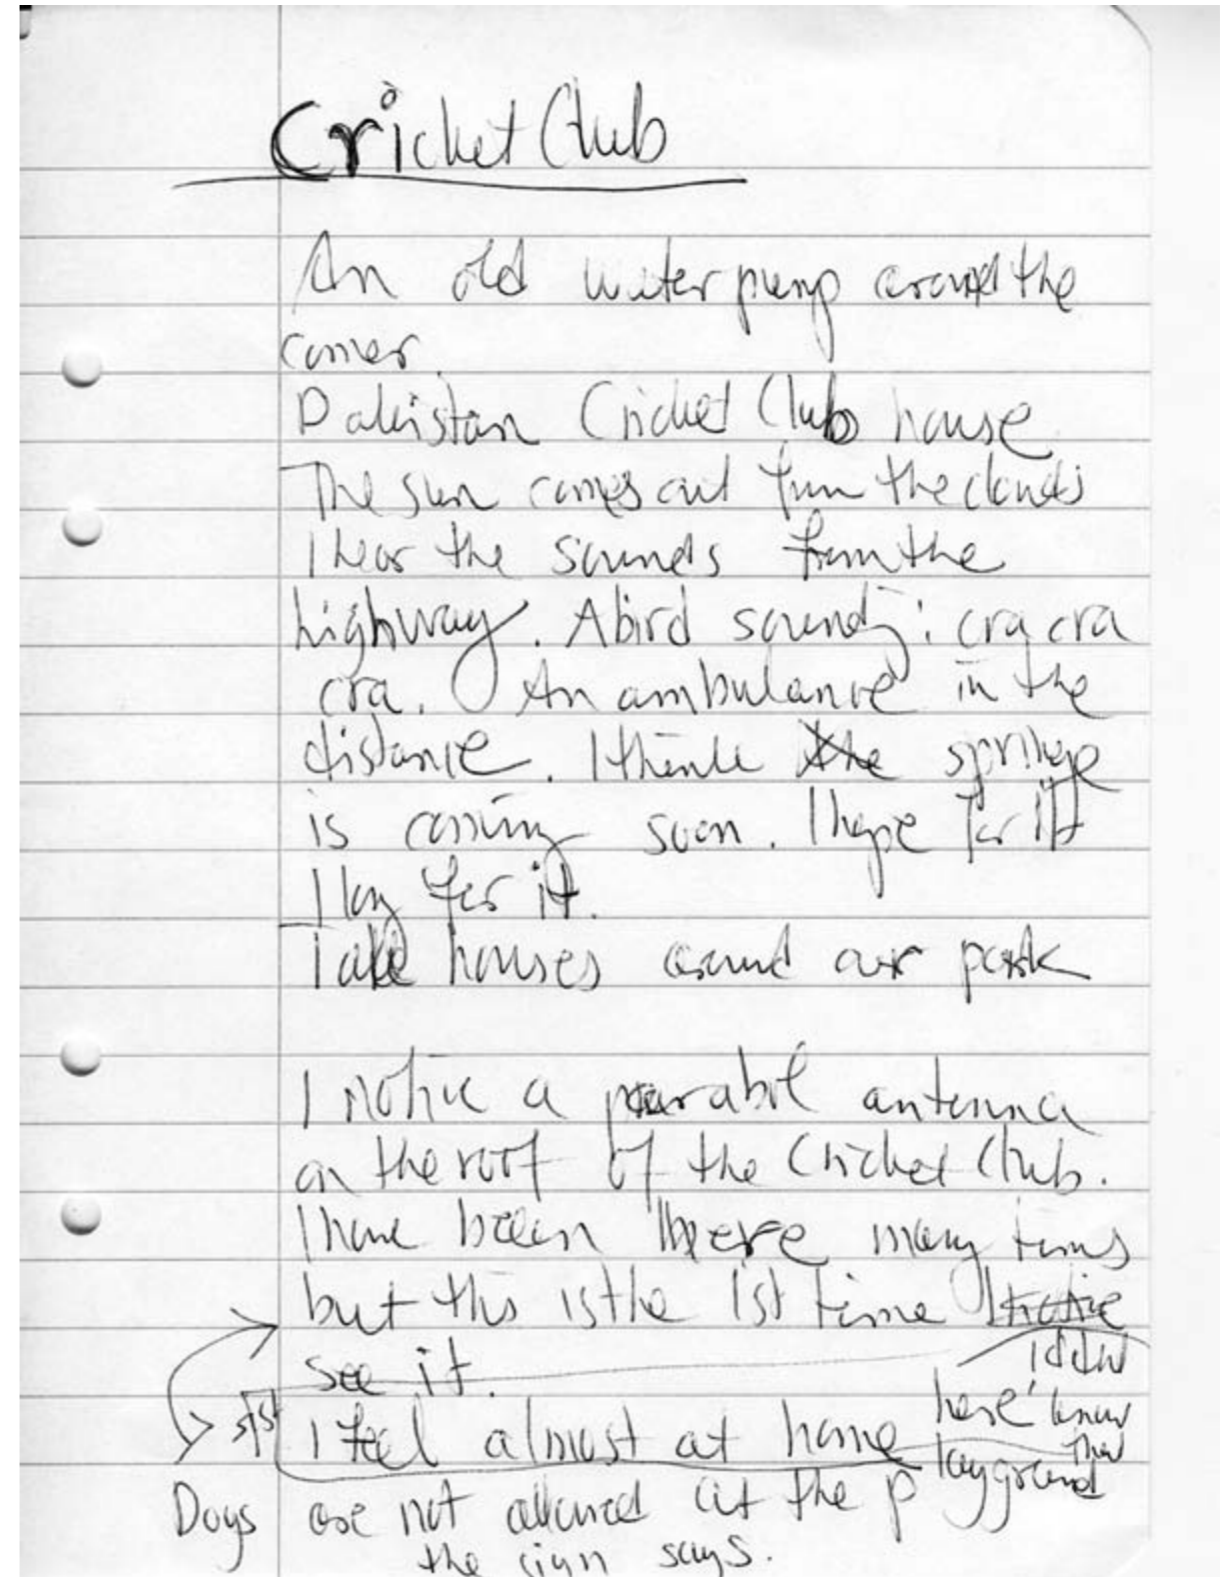 Cricket Club
An old water pump around the
corner.
Pakistan Cricket Club house
The sun comes out from the clouds
I hear the sounds from the
highway. A bird sounds: cra cra
cra. An ambulance in the
distance. I think the spring
is coming soon. I hope for it
I long for it.
houses around our park
I notice a parabol antenna
on the roof of the Cricket Club.
I have been here many times
but this is the 1st time I notice
see it.
I feel almost at home here
I didn't
know that
Dogs are not allowed at the playground
the sign says.